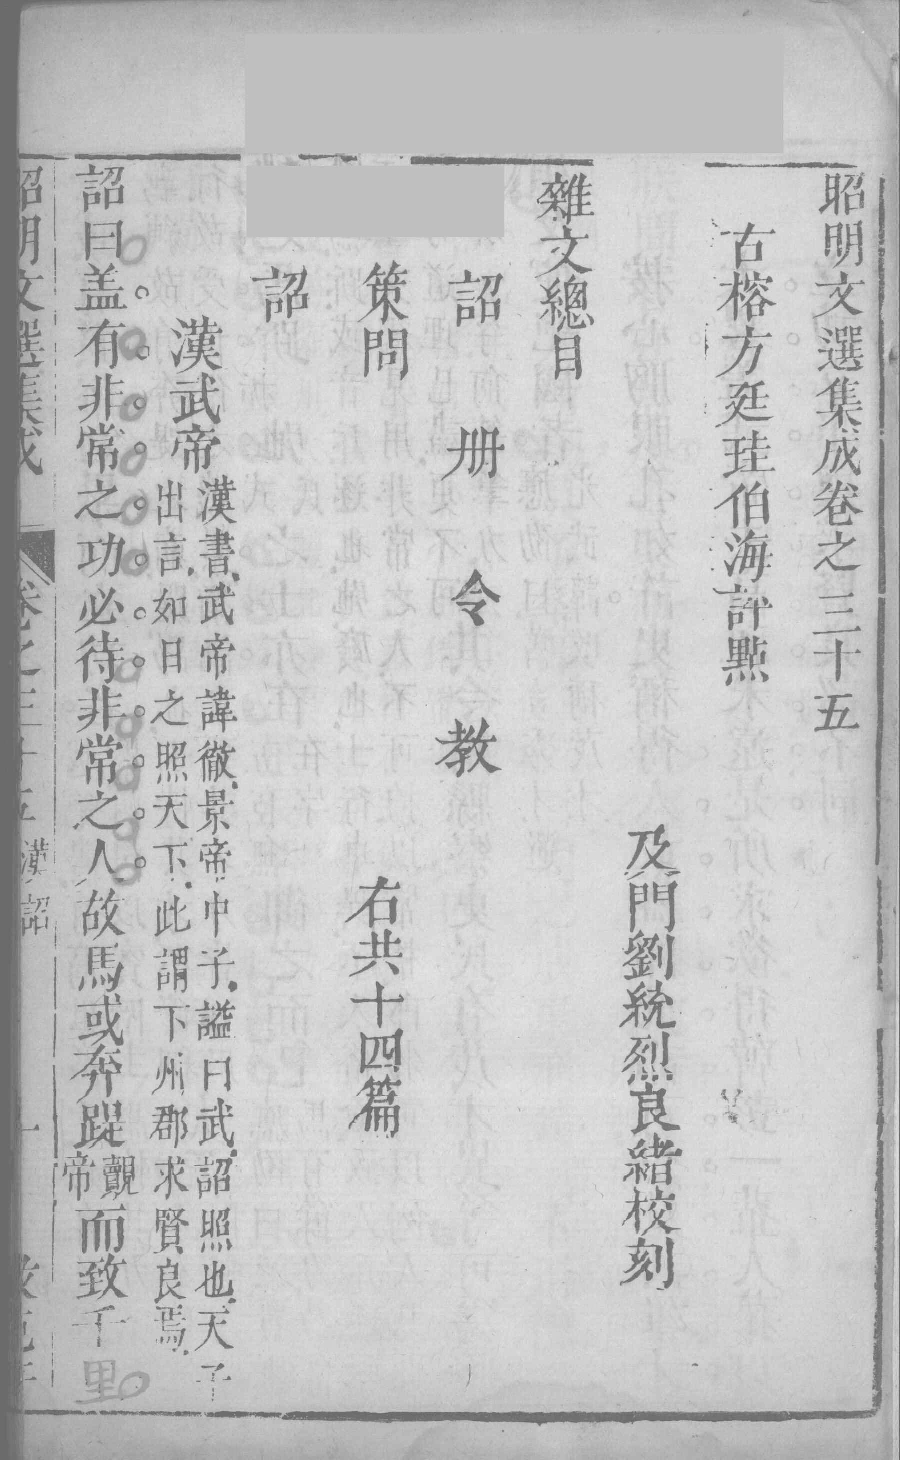 昭明文選集成卷之三十五
古榕方廷珪伯海評點
及門劉統烈良緒校刻
雜文總目
詔 册 令 教
策問 右共十四篇
詔
漢武帝
漢書武帝諱徹景帝中子謚曰武詔照也天子
出言如日之照天下此謂下州郡求賢良焉
詔曰盖有非常之功必待非常之人故馬或奔踶
帝
而致千里
昭明文選集成 卷之三十五 漢詔 一